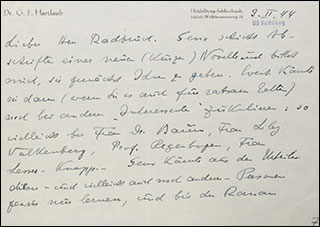 Dr. G. F. Hartlaub
Heidelberg-Schlierbach
3. II. 44
UB Heidelberg
Lieber Herr Radbruch. Geno schickt Ab-
schrifte einer neuen (kurzen) Novelle und bittet
mich, sie zunächst Ihnen zu geben. Event. könnte
sie dann (wenn Sie es auch für ratsam halten)
noch bei anderen Interessenten zirkulieren: so
vielleicht bei Frau Dr. Baum, Frau Lily
Valkenberg, Prof. Regenbogen, Frau
Knapp. - Geno könnte aus den Urteilen
dieser - und vielleicht auch noch anderer - Personen
gewiss nur lernen, und bis der Roman